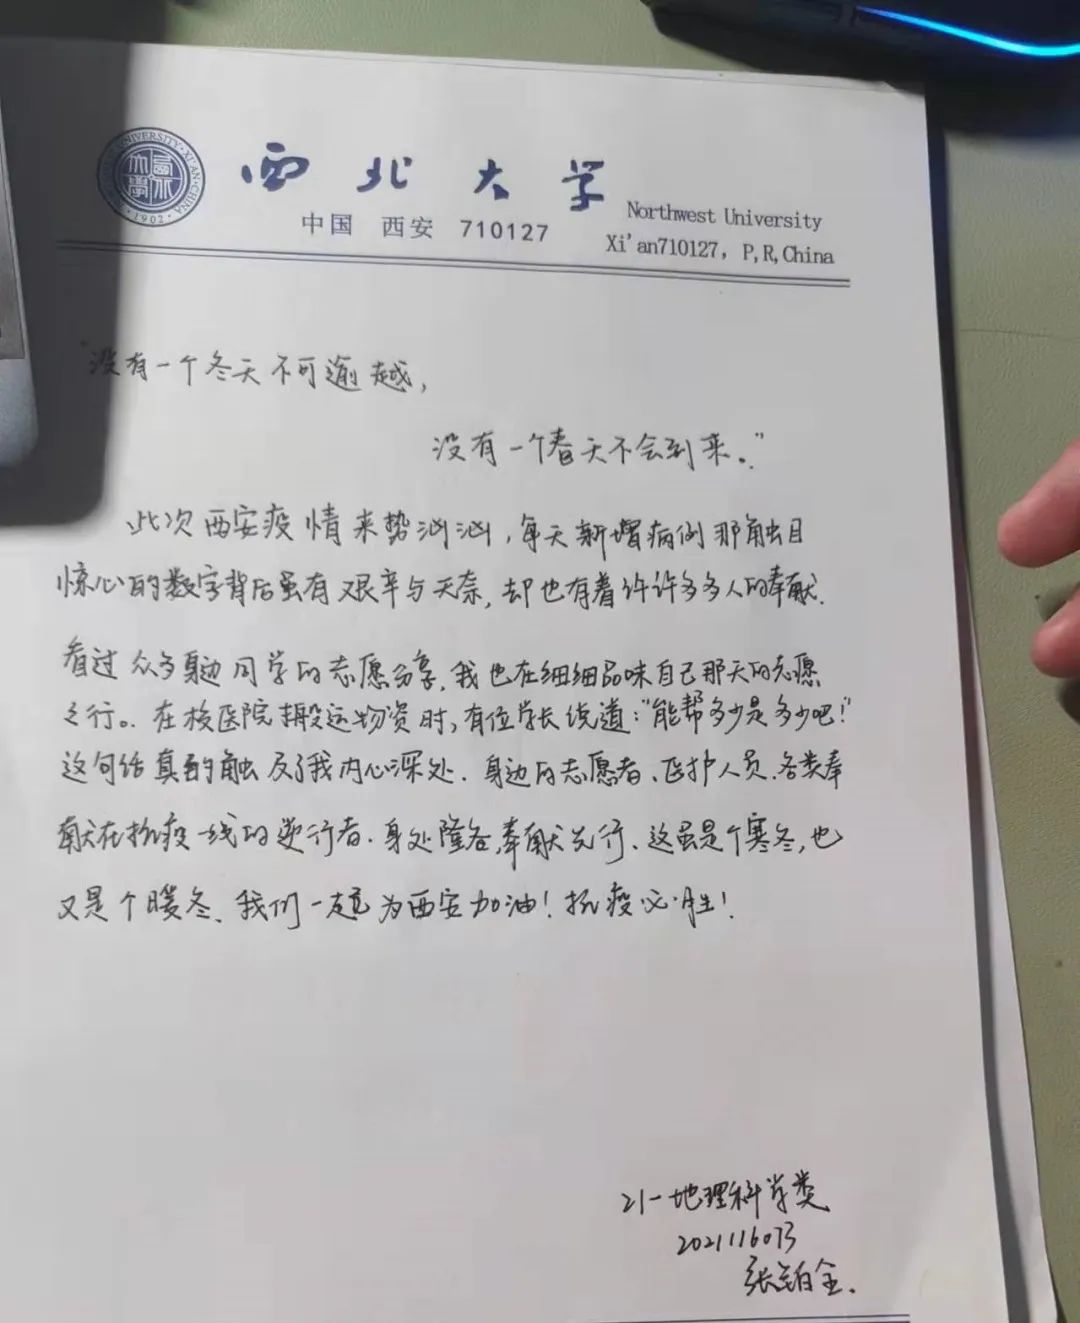 西北大学
中国 西安 710127
Northwest University
Xi'an710127, P,R,China
1902
"没有一个冬天不可逾越,
没有一个春天不会到来。"
此次西安疫情来势汹汹,每天新增病例那触目
惊心的数字背后虽有艰辛与无奈,却也有着许许多多人的奉献.
看过众多身边同学的志愿分享,我也在细细品味自己那天的志愿
之行。在校医院搬运物资时,有位学长说道:"能帮多少是多少吧!"
这句话真的触及了我内心深处.身边的志愿者、医护人员、各类奉
献在抗疫一线的逆行者.身处隆冬,奉献先行、这虽是个寒冬,也
又是个暖冬、我们一起为西安加油!抗疫必胜!
21一地理科学类
2021116073
张铂全.